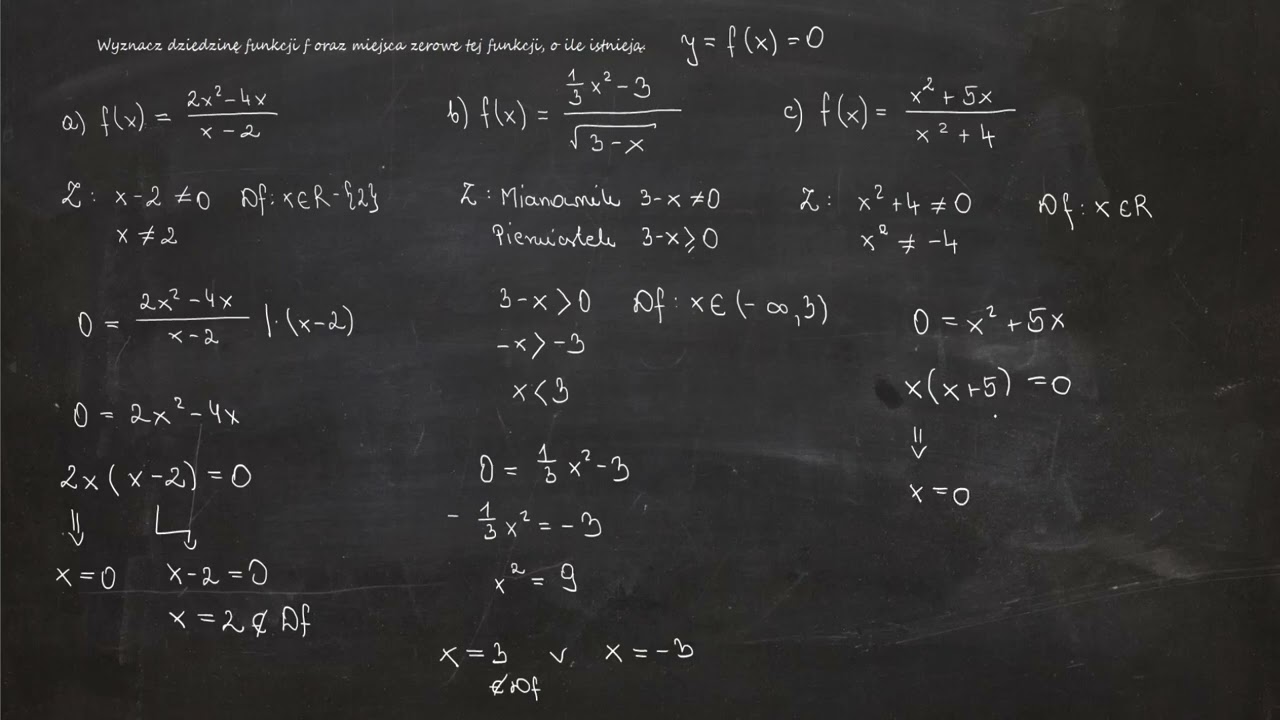 Wyznacz dziedzinę funkcji f oraz miejsca zerowe tej funkcji, o ile istnieją. y = f(x) = 0
a) f(x) = (2x² - 4x)/(x - 2)
Z: x - 2 ≠ 0 Df: x∈R - {2}
x ≠ 2
0 = (2x² - 4x)/(x - 2) |·(x-2)
0 = 2x² - 4x
2x(x - 2) = 0
⇓ ↳
x = 0 x - 2 = 0
x = 2 ∉ Df
b) f(x) = (1/3 x² - 3)/√(3 - x)
Z: Mianownik 3-x ≠ 0
Pierwiastek 3-x ⩾ 0
3-x > 0 Df: x∈(-∞,3)
-x > -3
x < 3
0 = 1/3 x² - 3
- 1/3 x² = -3
x² = 9
x = 3 v x = -3
∉ Df
c) f(x) = (x² + 5x)/(x² + 4)
Z: x² + 4 ≠ 0 Df: x∈R
x² ≠ -4
0 = x² + 5x
x(x+5) = 0
⇓
x = 0